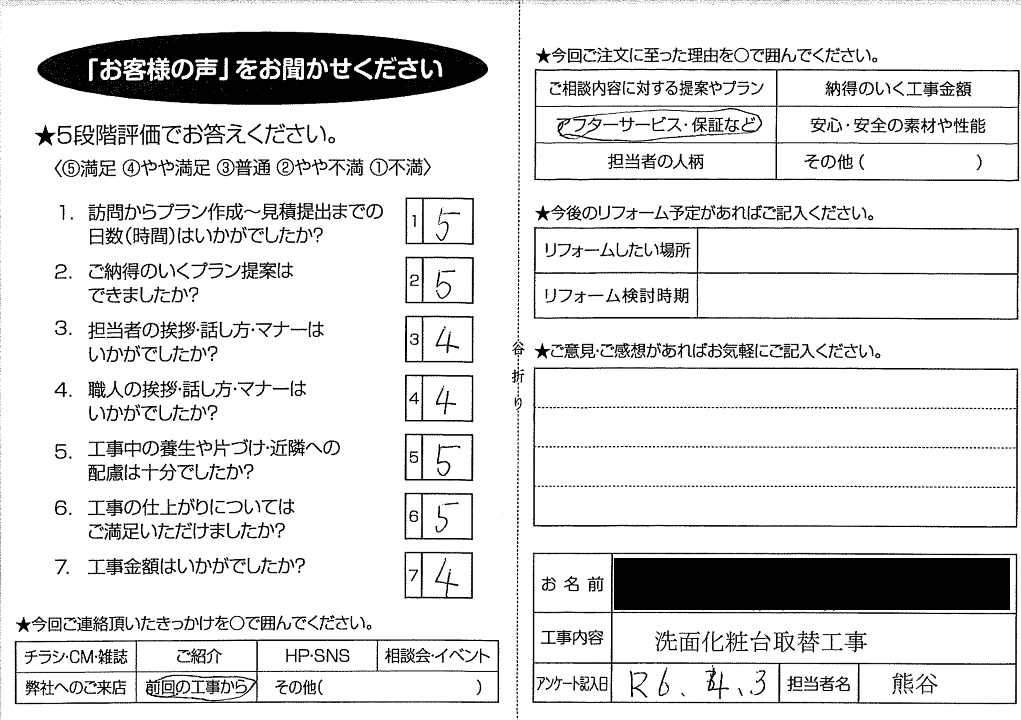 「お客様の声」をお聞かせください
★5段階評価でお答えください。
〈⑤満足 ④やや満足 ③普通 ②やや不満 ①不満〉
1. 訪問からプラン作成～見積提出までの
日数(時間)はいかがでしたか?
1 5
2. ご納得のいくプラン提案は
できましたか?
2 5
3. 担当者の挨拶・話し方・マナーは
いかがでしたか?
3 4
4. 職人の挨拶・話し方・マナーは
いかがでしたか?
4 4
5. 工事中の養生や片づけ・近隣への
配慮は十分でしたか?
5 5
6. 工事の仕上がりについては
ご満足いただけましたか?
6 5
7. 工事金額はいかがでしたか?
7 4
★今回ご連絡頂いたきっかけを〇で囲んでください。
チラシ・CM・雑誌 ご紹介 HP・SNS 相談会・イベント
弊社へのご来店 前回の工事から その他( )
谷折り
★今回ご注文に至った理由を〇で囲んでください。
ご相談内容に対する提案やプラン 納得のいく工事金額
アフターサービス・保証など 安心・安全の素材や性能
担当者の人柄 その他( )
★今後のリフォーム予定があればご記入ください。
リフォームしたい場所
リフォーム検討時期
★ご意見・ご感想があればお気軽にご記入ください。
お名前
工事内容 洗面化粧台取替工事
アンケート記入日 R6.4.3 担当者名 熊谷